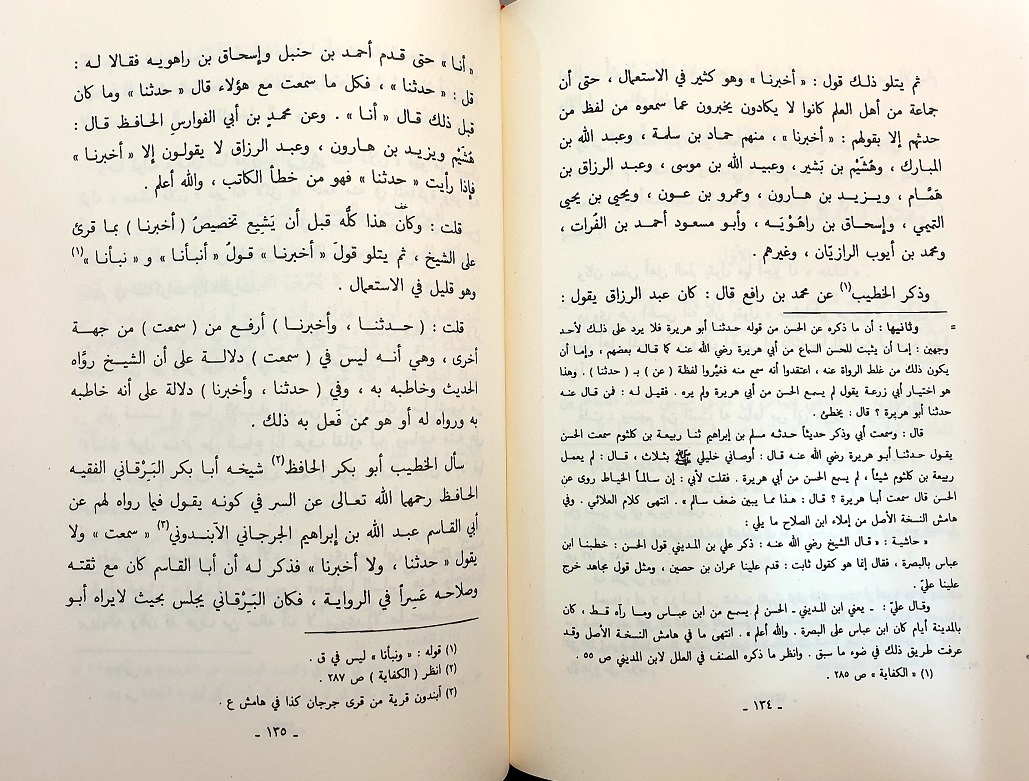 ثم يتلو ذلك قول : « أخبرنا » وهو كثير في الاستعمال ، حتى أن
جماعة من أهل العلم كانوا لا يكادون يخبرون عما سمعوه من لفظ من
حدثهم إلا بقولهم : « أخبرنا » ، منهم حماد بن سلمة ، وعبد الله بن
المبارك ، وهُشَيْم بن بَشير ، وعبيد الله بن موسى ، وعبد الرزاق بن
همَّام ، ويزيد بن هارون ، وعمرو بن عون ، ويحيى بن يحيى
التميمي ، وإسحاق بن راهُوْيَه ، وأبو مسعود أحمد بن الفُرات ،
ومحمد بن أيوب الرازيَّان ، وغيرهم .
وذكر الخطيب(١) عن محمد بن رافع قال : كان عبد الرزاق يقول :
= وثانيها : أن ما ذكره عن الحسن من قوله حدثنا أبو هريرة فلا يرد على ذلك لأحد
وجهين : إما أن يثبت للحسن السماع من أبي هريرة رضي الله عنه كما قاله بعضهم ، وإما أن
يكون ذلك من غلط الرواة عنه ، اعتقدوا أنه سمع منه فغيَّروا لفظة ( عن ) بـ ( حدثنا ) . وهذا
هو اختيار أبي زرعة يقول لم يسمع الحسن من أبي هريرة ولم يره . فقيل له : فمن قال عنه
حدثنا أبو هريرة ؟ قال : يخطئ .
قال : وسمعت أبي وذكر حديثاً حدثه مسلم بن إبراهيم ثنا ربيعة بن كلثوم سمعت الحسن
يقول حدثنا أبو هريرة رضي الله عنه قال : أوصاني خليلي ﷺ بثلاث ، قال : لم يعمل
ربيعة بن كلثوم شيئاً ، لم يسمع الحسن من أبي هريرة . فقلت لأبي : إن سالماً الخياط روى عن
الحسن قال سمعت أبا هريرة ؟ قال : هذا مما يبين ضعف سالم » . انتهى كلام العلائي . وفي
هامش النسخة الأصل من إملاء ابن الصلاح ما يلي :
« حاشية : « قال الشيخ رضي الله عنه : ذكر علي بن المديني قول الحسن : خطبنا ابن
عباس بالبصرة ، فقال إنما هو كقول ثابت : قدم علينا عمران بن حصين ، ومثل قول مجاهد خرج
علينا عليّ .
وقال عليّ : ـ يعني ابن المديني ـ الحسن لم يسمع من ابن عباس وما رآه قط ، كان
بالمدينة أيام كان ابن عباس على البصرة . والله أعلم » . انتهى ما في هامش النسخة الأصل وقد
عرفت طريق ذلك في ضوء ما سبق . وانظر ما ذكره المصنف في العلل لابن المديني ص ٥٥ .
(١) « الكفاية » ص ٢٨٥ .
ـ ١٣٤ ـ
« أنا » حتى قدم أحمد بن حنبل وإسحاق بن راهويه فقالا له :
قل : « حدثنا » ، فكل ما سمعت مع هؤلاء قال « حدثنا » وما كان
قبل ذلك قال « أنا » . وعن محمدٍ بن أبي الفوارس الحافظ قال :
هُشَيْم ويزيد بن هارون ، وعبد الرزاق لا يقولون إلا « أخبرنا »
فإذا رأيت « حدثنا » فهو من خطأ الكاتب ، والله أعلم .
قلت : وكان هذا كلُّه قبل أن يَشيع تخصيصُ ( أخبرنا ) بما قرئ
على الشيخ ، ثم يتلو قولَ « أخبرنا » قولُ « أنبأنا » و « نبأنا »(١)
وهو قليل في الاستعمال .
قلت : ( حدثنا ، وأخبرنا ) أرفع من ( سمعت ) من جهة
أخرى ، وهي أنه ليس في ( سمعت ) دلالة على أن الشيخ روَّاه
الحديث وخاطبه به ، وفي ( حدثنا ، وأخبرنا ) دلالة على أنه خاطبه
به ورواه له أو هو ممن فَعل به ذلك .
سأل الخطيب أبو بكر الحافظ(٢) شيخه أبا بكر البَرْقاني الفقيه
الحافظ رحمهما الله تعالى عن السر في كونه يقول فيما رواه لهم عن
أبي القاسم عبد الله بن إبراهيم الجرجاني الآبندوني(٣) « سمعت » ولا
يقول « حدثنا ، ولا أخبرنا » فذكر له أن أبا القاسم كان مع ثقته
وصلاحه عَسِراً في الرواية ، فكان البَرْقاني يجلس بحيث لايراه أبو
(١) قوله : « ونبأنا » ليس في ق .
(٢) انظر ( الكفاية ) ص ٢٨٧ .
(٣) آبندون قرية من قرى جرجان كذا في هامش ع .
ـ ١٣٥ ـ